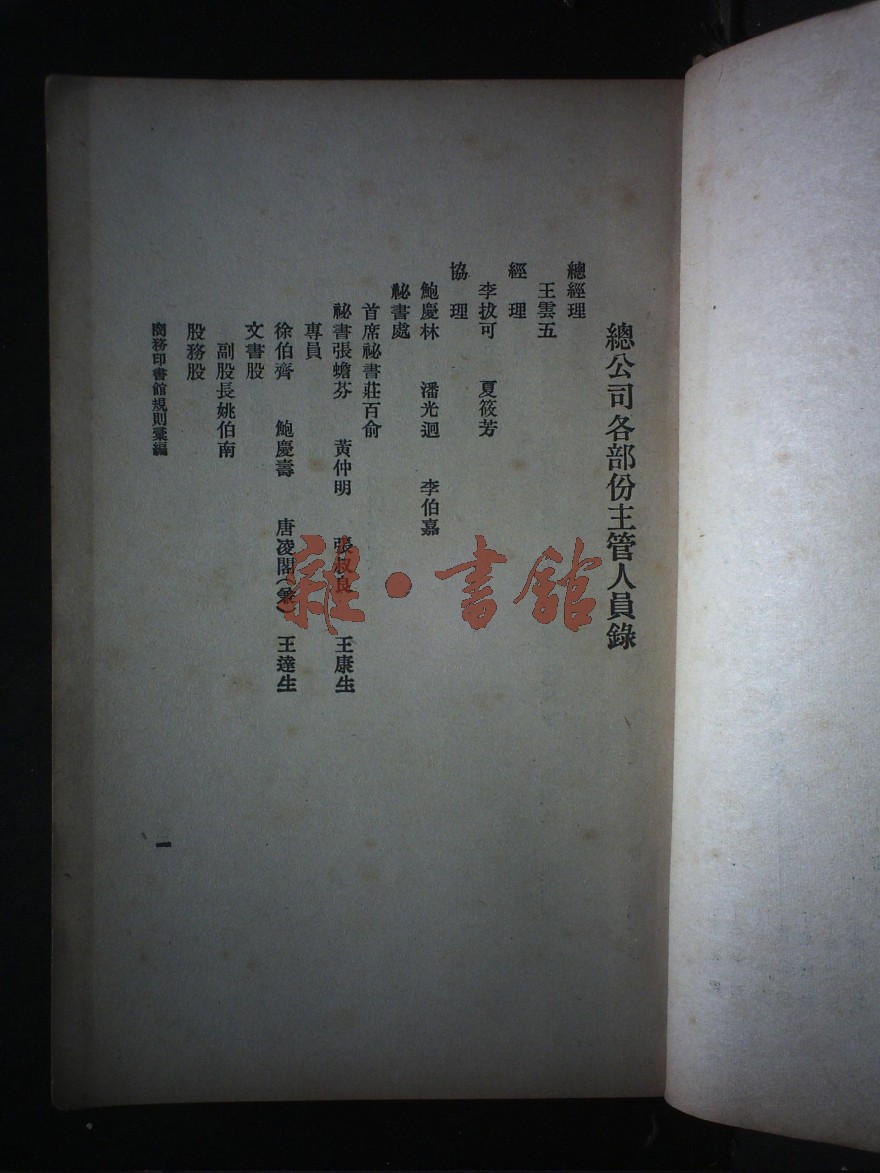 總公司各部份主管人員錄
總經理
王雲五
經理
李拔可 夏筱芳
協理
鮑慶林 潘光迥 李伯嘉
祕書處
首席祕書莊百俞
祕書張蟾芬 黃仲明 張叔良 王康生
專員
徐伯齊 鮑慶壽 唐凌閣(兼) 王達生
文書股
副股長姚伯南
股務股
商務印書館規則彙編
一
雜·書館